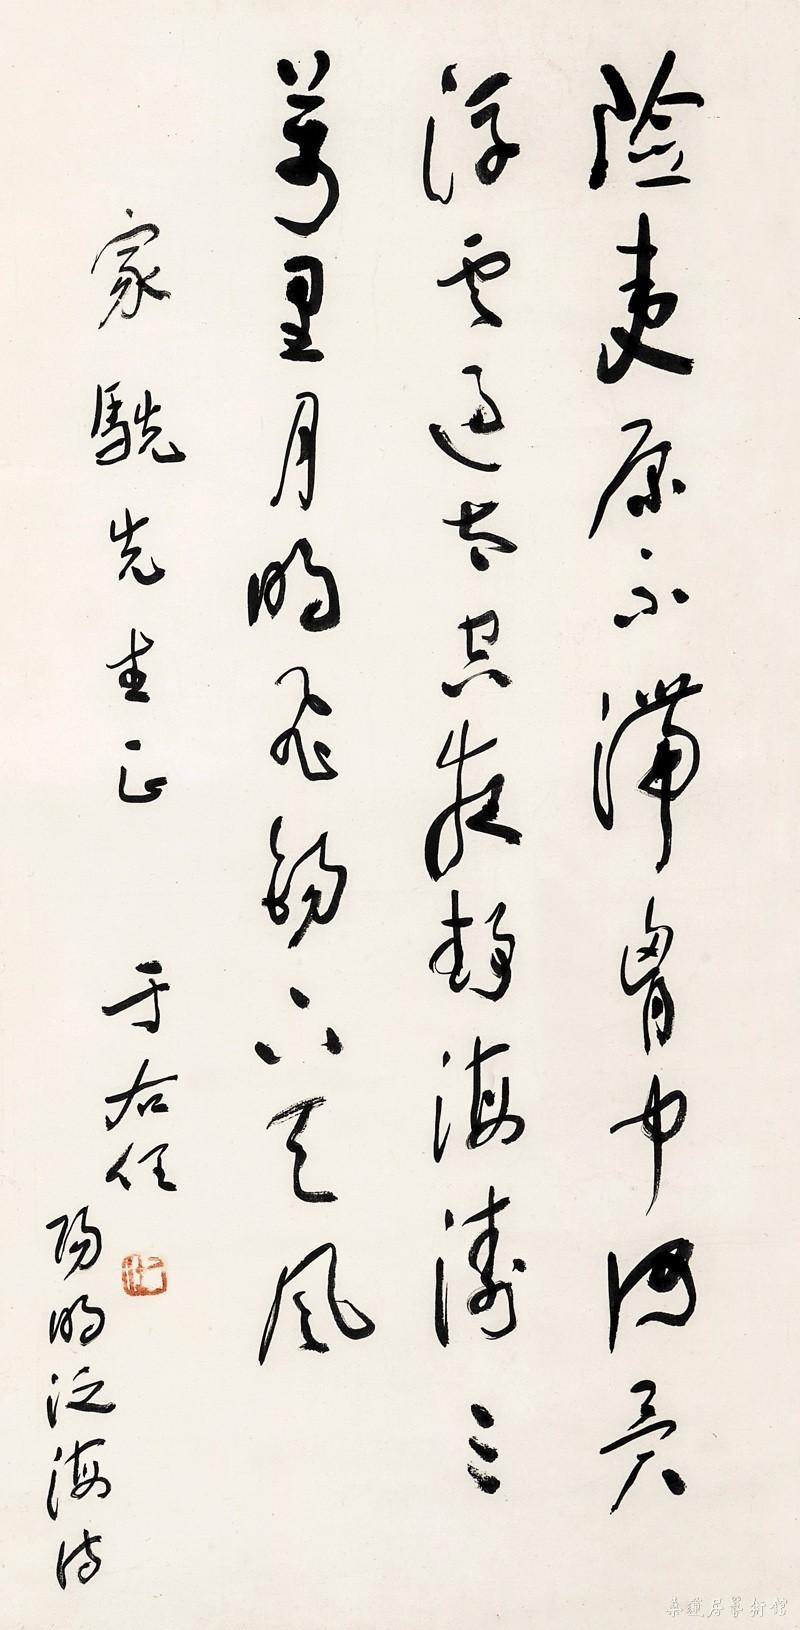 險夷原不滯胷中何異
浮雲過太空夜靜海濤三
萬里月明飛錫下天風
家駪先生正 于右任
陽明泛海詩